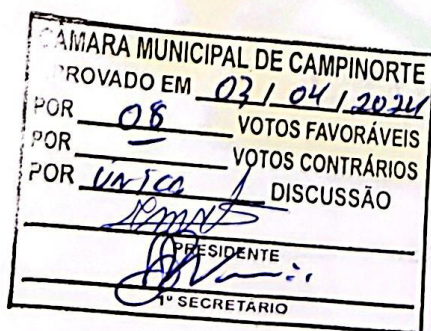 CÂMARA MUNICIPAL DE CAMPINORTE
PROVADO EM 03 / 04 / 2024
POR 08 VOTOS FAVORÁVEIS
POR — VOTOS CONTRÁRIOS
POR única DISCUSSÃO
PRESIDENTE
1º SECRETÁRIO